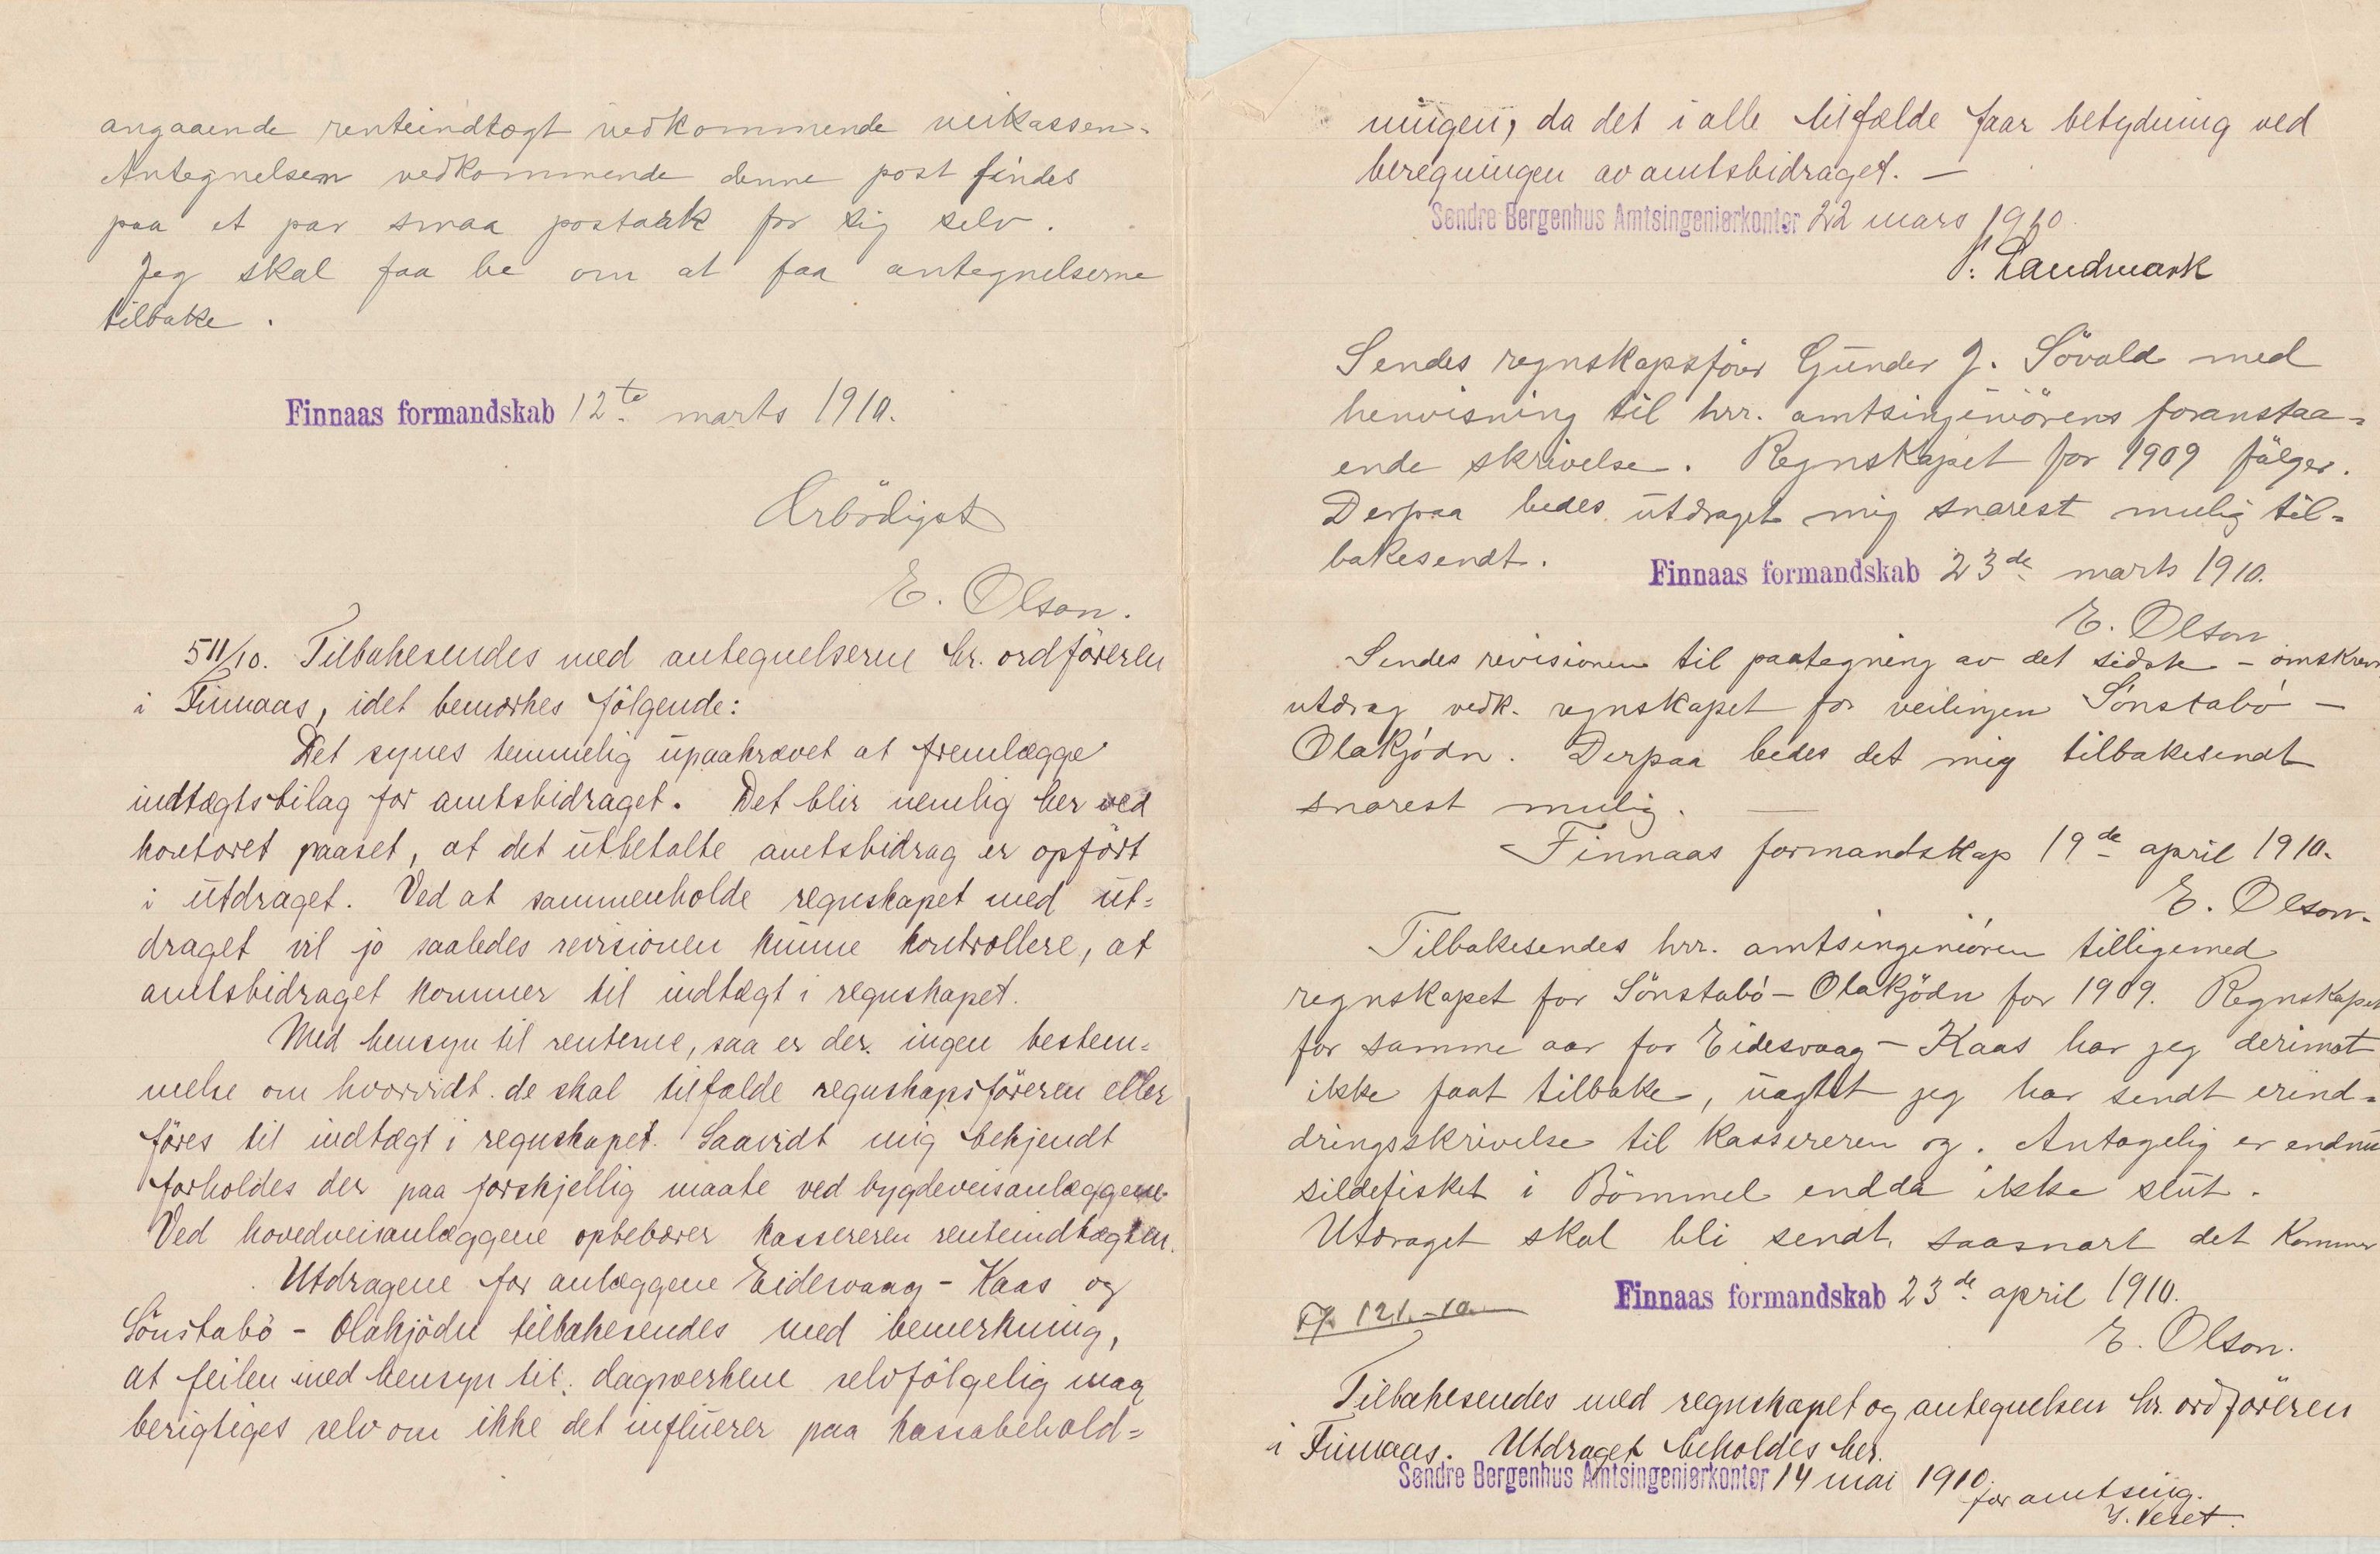 angaaende renteindtægt vedkommende veikassen.
Antegnelsen vedkommende denne post findes
paa et par smaa postark for sig selv.
Jeg skal faa be om at faa antegnelserne
tilbake.
Finnaas formandskab 12te marts 1910.
Ærbödigst
E. Olson.
511/10. Tilbakesendes med antegnelserne hr. ordföreren
i Finnaas, idet bemærkes fölgende:
Det synes temmelig upaakrævet at fremlægge
indtægtsbilag for amtsbidraget. Det blir nemlig her ved
kontoret paaset, at det utbetalte amtsbidrag er opfört
i utdraget. Ved at sammenholde regnskapet med ut=
draget vil jo saaledes revisionen kunne kontrollere, at
amtsbidraget kommer til indtægt i regnskapet.
Med hensyn til renterne, saa er der ingen bestem=
melse om hvorvidt de skal tilfalde regnskapsföreren eller
föres til indtægt i regnskapet. Saavidt mig bekjendt
forholdes der paa forskjellig maate ved bygdeveisanlæggene.
Ved hovedveisanlæggene oppebærer kassereren renteindtægten.
Utdragene for anlæggene Eidesvaag - Kaas og
Sönstabö - Olakjödn tilbakesendes med bemerkning,
at feilen med hensyn til dagverkene selvfölgelig maa
berigtiges selv om ikke det influerer paa kassabehold=
ningen, da det i alle tilfælde faar betydning ved
beregningen av amtsbidraget. —
Søndre Bergenhus Amtsingeniørkontor 22 mars 1910.
P. Landmark
Sendes regnskapsförer Gunder J. Sövold med
henvisning til hrr. amtsingeniörens foranstaa=
ende skrivelse. Regnskapet for 1909 fölger.
Derpaa bedes utdraget mig snarest mulig til=
bakesendt.
Finnaas formandskab 23de marts 1910.
E. Olson
Sendes revisionen til paategning av det sidste - omskrevne
utdrag vedk. regnskapet for veilinjen Sönstabö —
Olakjödn. Derpaa bedes det mig tilbakesendt
snarest mulig. —
Finnaas formandskap 19de april 1910.
E. Olson.
Tilbakesendes hrr. amtsingeniören tilligemed
regnskapet for Sönstabö - Olakjödn for 1909. Regnskapet
for samme aar for Eidesvaag - Kaas har jeg derimot
ikke faat tilbake, uagtet jeg har sendt erind=
dringsskrivelse til kassereren og. Antagelig er endnu
sildefisket i Bömmel endda ikke slut.
Utdraget skal bli sendt, saasnart det kommer
Finnaas formandskab 23de april 1910.
E. Olson.
121.-10
Tilbakesendes med regnskapet og antegnelsen hr. ordföreren
i Finnaas. Utdraget beholdes her.
Søndre Bergenhus Amtsingeniørkontor 14 mai 1910.
for amtsing.